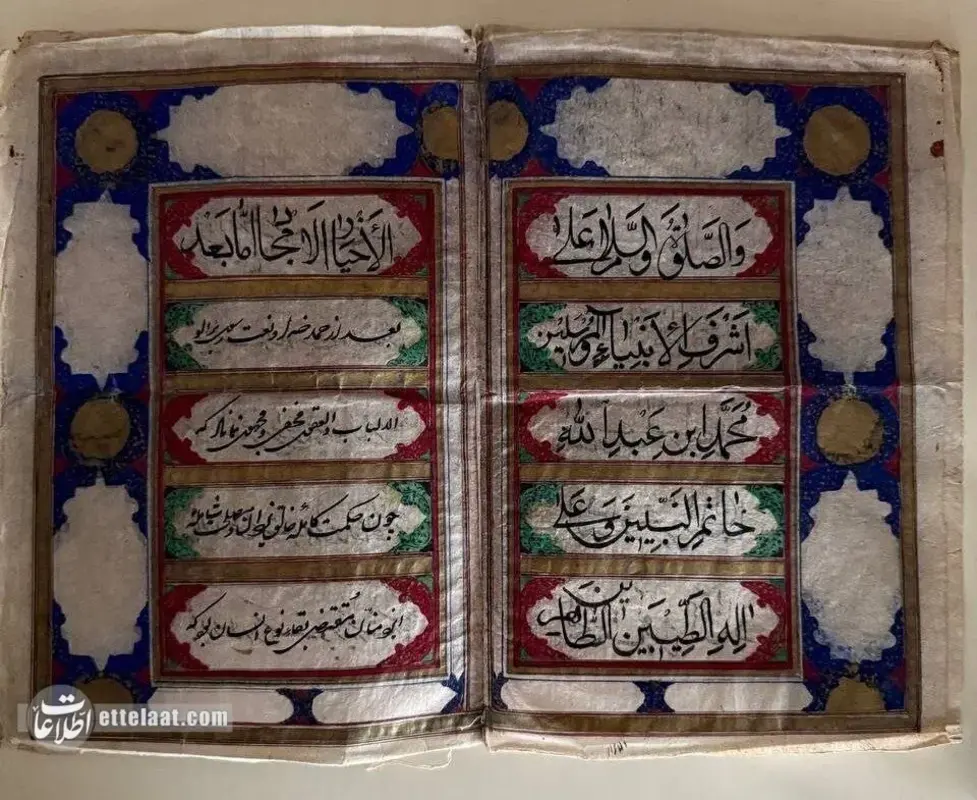 وَالصَّلوةُ وَالسَّلامُ عَلى
اَشْرَفِ الاَنبِیَاءِ وَالمُرسَلین
مُحَمَّدِ ابنِ عَبدِ اللهِ
خَاتَمِ النَّبِیّینَ وَعَلی
الِهِ الطَّیِّبِینَ الطَّاهِرینَ
الأَخیَارِ الاَمجَادِ اَمَّا بَعْد
بعد از حمد خداوند و نعت
الالباب والعقول مخفی و محجوب نماناد که
چون حکمت کامله خالق
مقتضی بقاء نوع انسان بود که
اطلاعات
ettelaat.com